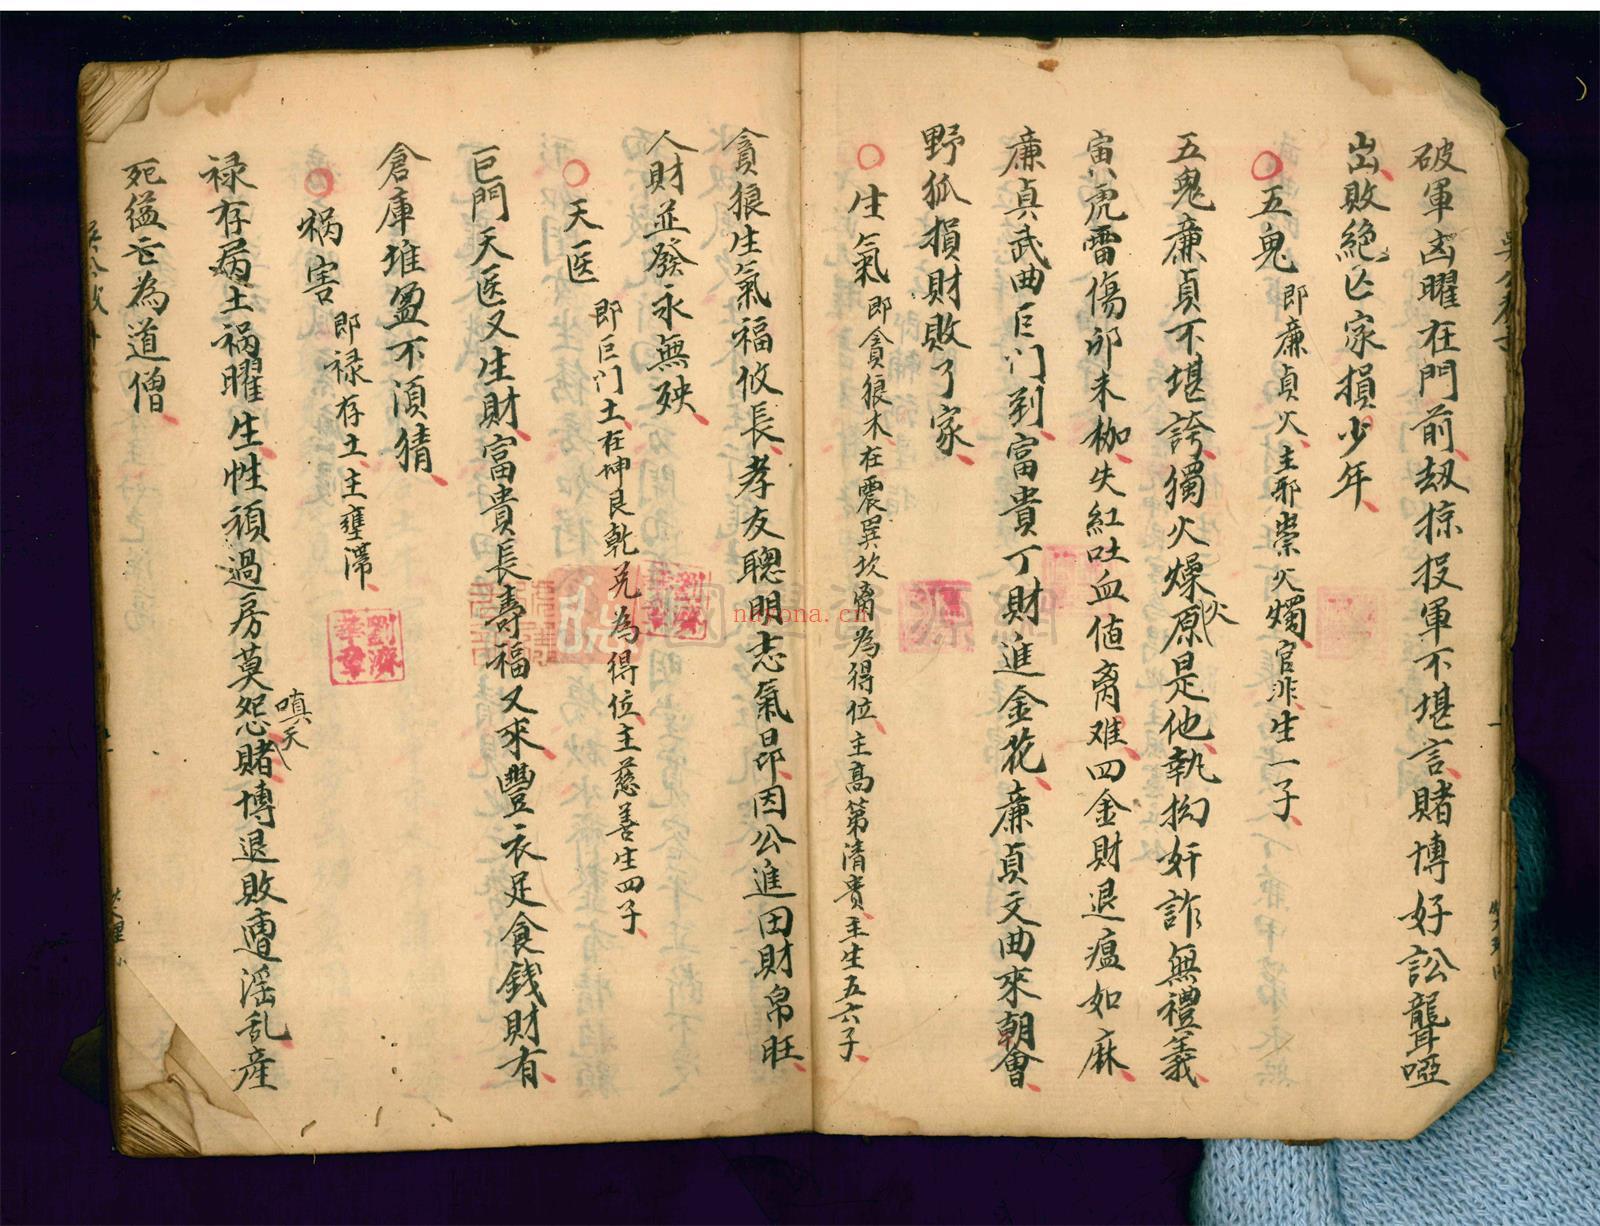 破軍凶曜在門前劫掠投軍不堪言賭博好訟聾啞
出敗絶亡家損少年
五鬼 即廉貞火主邪祟火燭官非生一子
五鬼廉貞不堪誇獨火燥原是他執拗奸詐無禮義
火
寅虎雷傷卯未枷失紅吐血值离难四金財退瘟如麻
廉貞武曲巨门到富貴丁財進金花廉貞文曲來朝會
野狐損財敗了家
生氣 即貪狼木在震巽坎离為得位主高第清貴主生五六子
貪狼生氣福攸長孝友聰明志氣昂因公進田財帛旺
人財並發永無殃
天医 即巨门土在坤艮乾兑為得位主慈善生四子
巨門天医又生財富貴長壽福又來豐衣足食錢財有
倉庫堆盈不須猜
祸害 即禄存土主壅滞
劉濟華章
禄存病土祸曜生性頑過房莫怨賭博退敗遭淫乱産
嗔天
死為道僧
nayona.cn